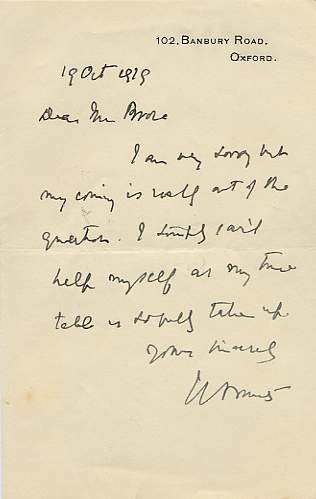 102, BANBURY ROAD,
OXFORD.
19 Oct 1919
Dear Mr
I am very sorry but
my coming is really out of the
question. I simply can't
help myself as my time
table is so fully taken up
Yours sincerely